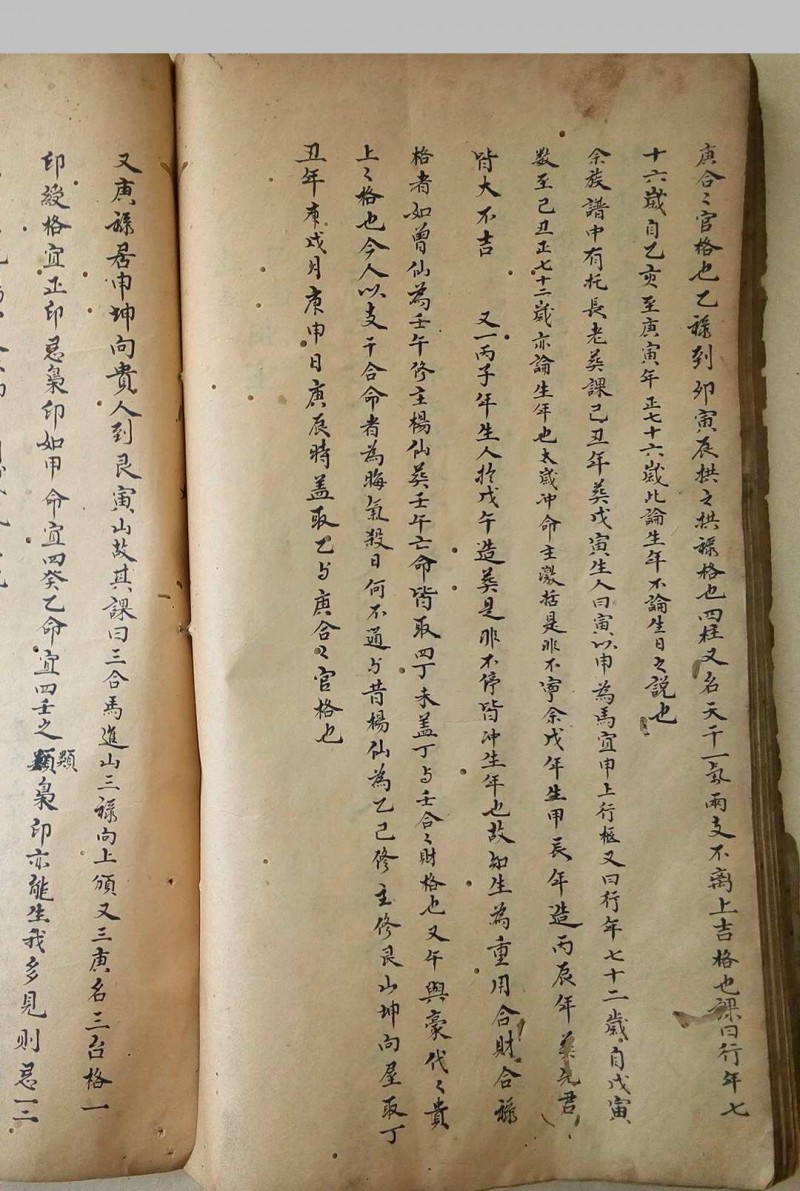 庚合〻官格也乙祿到卯寅辰拱之拱祿格也四柱又名天干一氣兩支不离上吉格也課曰行年七
十六歲自乙亥至庚寅年正七十六歲此論生年不論生日之說也
余族譜中有托長老葬課己丑年葬戊寅生人曰寅以申為馬宜申上行柩又曰行年七十二歲自戊寅
数至己丑正七十二歲亦論生年也太歲冲命主激括是非不寧余戊年生甲辰年造丙辰年葬先君
皆大不吉 又一丙子年生人於戊午造葬是非不停皆冲生年也故知生為重用合財合祿
格者如曾仙為壬午修主楊仙葬壬午亡命皆取四丁未盖丁与壬合〻財格也又午與豪代〻貴
上〻格也今人以支干合命者為晦氣殺日何不通与昔楊仙為乙己修主修艮山坤向屋取丁
丑年庚戌月庚申日庚辰時盖取乙与庚合〻官格也
又庚祿居申坤向貴人到艮寅山故其課曰三合馬進山三祿向上頒又三庚名三台格一
印綬格宜正印忌梟印如甲命宜四癸乙命宜四壬之類梟印亦能生我多見則忌一二